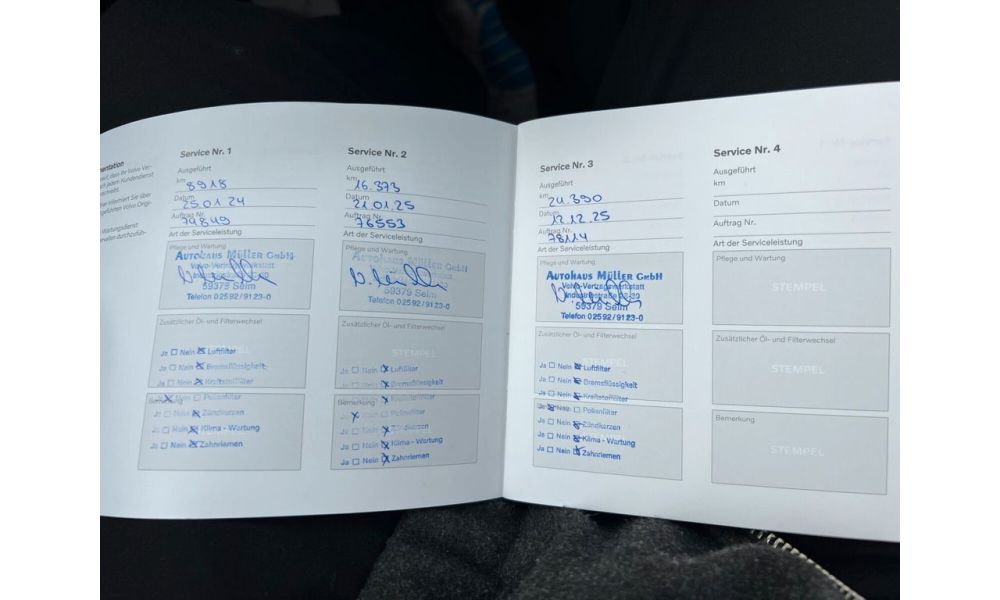 mentation
Service Nr. 1
Ausgeführt
km 8918
Datum 25.01.24
Auftrag Nr. 74849
Art der Serviceleistung
Pflege und Wartung
AUTOHAUS MÜLLER GMBH
59379 Selm
Telefon 02592/9123-0
Zusätzlicher Öl- und Filterwechsel
Ja Nein Luftfilter
Ja Nein Bremsflüssigkeit
Ja Nein Kraftstoffilter
Bemerkung
Nein Pollenfilter
Ja Nein Zündkerzen
Ja Nein Klima - Wartung
Ja Nein Zahnriemen
Service Nr. 2
Ausgeführt
km 16.373
Datum 21.01.25
Auftrag Nr. 76553
Art der Serviceleistung
Pflege und Wartung
AUTOHAUS MÜLLER GMBH
59379 Selm
Telefon 02592/9123-0
Zusätzlicher Öl- und Filterwechsel
STEMPEL
Ja Nein Luftfilter
Ja Nein Bremsflüssigkeit
Ja Nein Kraftstoffilter
Bemerkung
Nein Pollenfilter
Ja Nein Zündkerzen
Ja Nein Klima - Wartung
Ja Nein Zahnriemen
Service Nr. 3
Ausgeführt
km 24.390
Datum 12.12.25
Auftrag Nr. 78114
Art der Serviceleistung
Pflege und Wartung
AUTOHAUS MÜLLER GMBH
Volvo-Vertragswerkstatt
59379 Selm
Telefon 02592/9123-0
Zusätzlicher Öl- und Filterwechsel
Ja Nein Luftfilter
Ja Nein Bremsflüssigkeit
Ja Nein Kraftstoffilter
Nein Pollenfilter
Ja Nein Zündkerzen
Ja Nein Klima - Wartung
Ja Nein Zahnriemen
Service Nr. 4
Ausgeführt
km
Datum
Auftrag Nr.
Art der Serviceleistung
Pflege und Wartung
STEMPEL
Zusätzlicher Öl- und Filterwechsel
STEMPEL
Bemerkung
STEMPEL